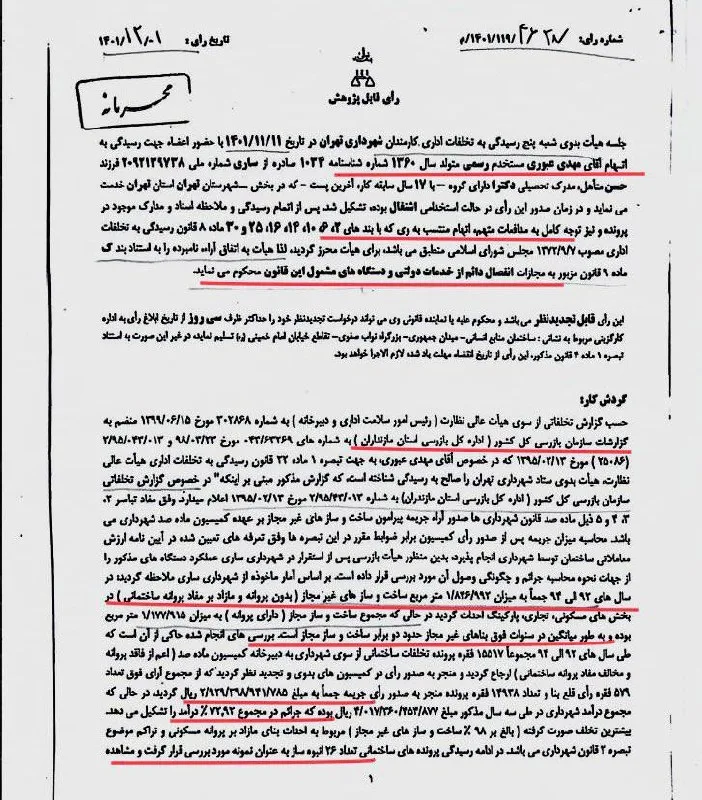 شماره رای: ۴۶۲۸/۱۴۰۱/۱۱۹/م
تاریخ رای: ۱۴۰۱/۱۲/۰۱
محرمانه
رأی قابل پژوهش
جلسه هیأت بدوی شعبه پنج رسیدگی به تخلفات اداری کارمندان شهرداری تهران در تاریخ ۱۴۰۱/۱۱/۱۱ با حضور اعضاء جهت رسیدگی به
اتهام آقای مهدی عبوری مستخدم رسمی متولد سال ۱۳۶۰ شماره شناسنامه ۱۰۳۴ صادره از ساری شماره ملی ۲۰۹۲۱۲۹۷۳۸ فرزند
حسن متأهل، مدرک تحصیلی دکترا دارای گروه – با ۱۷ سال سابقه کار، آخرین پست - که در بخش –شهرستان تهران استان تهران خدمت
می نماید و در زمان صدور این رأی در حالت استخدامی اشتغال بوده، تشکیل شد. پس از اتمام رسیدگی و ملاحظه اسناد و مدارک موجود در
پرونده و نیز توجه کامل به مدافعات متهم، اتهام منتسب به وی که با بند های ۲، ۶، ۱۰، ۱۴، ۱۶، ۲۵ و ۳۰ ماده ۸ قانون رسیدگی به تخلفات
اداری مصوب ۱۳۷۲/۹/۷ مجلس شورای اسلامی منطبق می باشد، برای هیأت محرز گردید، لذا هیأت به اتفاق آراء، نامبرده را به استناد بند ک
ماده ۹ قانون مزبور به مجازات انفصال دائم از خدمات دولتی و دستگاه های مشمول این قانون محکوم می نماید.
این رأی قابل تجدیدنظر می باشد و محکوم علیه یا نماینده قانونی وی می تواند درخواست تجدیدنظر خود را حداکثر ظرف سی روز از تاریخ ابلاغ رأی به اداره
کارگزینی مربوط به نشانی : ساختمان منابع انسانی- میدان جمهوری- بزرگراه نواب صفوی- تقاطع خیابان امام خمینی (ره) تسلیم نماید، در غیر این صورت به استناد
تبصره ۱ ماده ۴ قانون مذکور، این رأی از تاریخ انقضاء مهلت یاد شده لازم الاجرا خواهد بود.
گردش کار:
حسب گزارش تخلفاتی از سوی هیأت عالی نظارت ( رئیس امور سلامت اداری و دبیرخانه ) به شماره ۳۰۲۸۶۸ مورخ ۱۳۹۹/۰۶/۱۵ منضم به
گزارشات سازمان بازرسی کل کشور ( اداره کل بازرسی استان مازندران ) به شماره های ۰۴۳/۶۳۲۶۹ مورخ ۹۸/۰۳/۲۳ و ۲/۹۵/۴۳/۰۱۳
(۲۵۰۸۶ ) مورخ ۱۳۹۵/۰۲/۱۳ که در خصوص آقای مهدی عبوری، به جهت تبصره ۱ ماده ۲۲ قانون رسیدگی به تخلفات اداری هیأت عالی
نظارت، هیأت بدوی ستاد شهرداری تهران را صالح به رسیدگی شناخته است، که گزارش مذکور مبنی بر اینکه" در خصوص گزارش تخلفاتی
سازمان بازرسی کل کشور ( اداره کل بازرسی استان مازندران) به شماره ۲/۹۵/۴۳/۰۱۳ مورخ ۱۳۹۵/۰۲/۱۳ اعلام میدارد. وفق مفاد تباسر ۲،
۳، ۴ و ۵ ذیل ماده صد قانون شهرداری ها صدور آراء جریمه پیرامون ساخت و ساز های غیر مجاز بر عهده کمیسیون ماده صد شهرداری می
باشد. محاسبه میزان جریمه پس از صدور رأی کمیسیون برابر ضوابط مقرر در این تبصره ها وفق تعرفه های تعیین شده در آیین نامه ارزش
معاملاتی ساختمان توسط شهرداری انجام پذیرد، بدین منظور هیأت بازرسی پس از استقرار در شهرداری ساری عملکرد دستگاه های مذکور را
از جهات نحوه محاسبه جرائم و چگونگی وصول آن مورد بررسی قرار داده است. بر اساس آمار ماخوذه از شهرداری ساری ملاحظه گردید: در
سال های ۹۲ الی ۹۴ جمعاً به میزان ۱/۸۲۶/۹۹۲ متر مربع ساخت و ساز های غیر مجاز ( بدون پروانه و مازاد بر مفاد پروانه ساختمانی ) در
بخش های مسکونی، تجاری، پارکینگ احداث گردید در حالی که مجموع ساخت و ساز مجاز ( دارای پروانه ) به میزان ۱/۱۷۷/۹۱۵ متر مربع
بوده و به طور میانگین در سنوات فوق بناهای غیر مجاز حدود دو برابر ساخت و ساز مجاز است. بررسی های انجام شده حاکی از آن است که
طی سال های ۹۲ الی ۹۴ مجموعاً ۱۵۵۱۷ فقره پرونده تخلفات ساختمانی از سوی شهرداری به دبیرخانه کمیسیون ماده صد ( اعم از فاقد پروانه
و مخالف مفاد پروانه ساختمانی ) ارجاع گردید و منجر به صدور رأی در کمیسیون های بدوی و تجدید نظر گردید که از مجموع آراء فوق تعداد
۵۷۹ فقره رأی قلع بنا و تعداد ۱۴۹۳۸ فقره پرونده منجر به صدور رأی جریمه جمعاً به مبلغ ۲/۹۲۹/۳۹۸/۹۴۱/۷۸۵ ریال گردید، در حالی که
مجموع درآمد شهرداری در طی سه سال مذکور مبلغ ۴/۰۱۷/۳۶۰/۴۵۴/۸۷۷ ریال بوده که جرائم در مجموع ۷۲,۹۲٪ درآمد را تشکیل می دهد.
بیشترین تخلف صورت گرفته ( بالغ بر ۹۸ ٪ ساخت و ساز های غیر مجاز ) مربوط به احداث بنای مازاد بر پروانه مسکونی و تراکم موضوع
تبصره ۲ قانون شهرداری می باشد. در ادامه رسیدگی پرونده های ساختمانی تعداد ۲۶ انبوه ساز به عنوان نمونه مورد بررسی قرار گرفت و مشاهده
۱